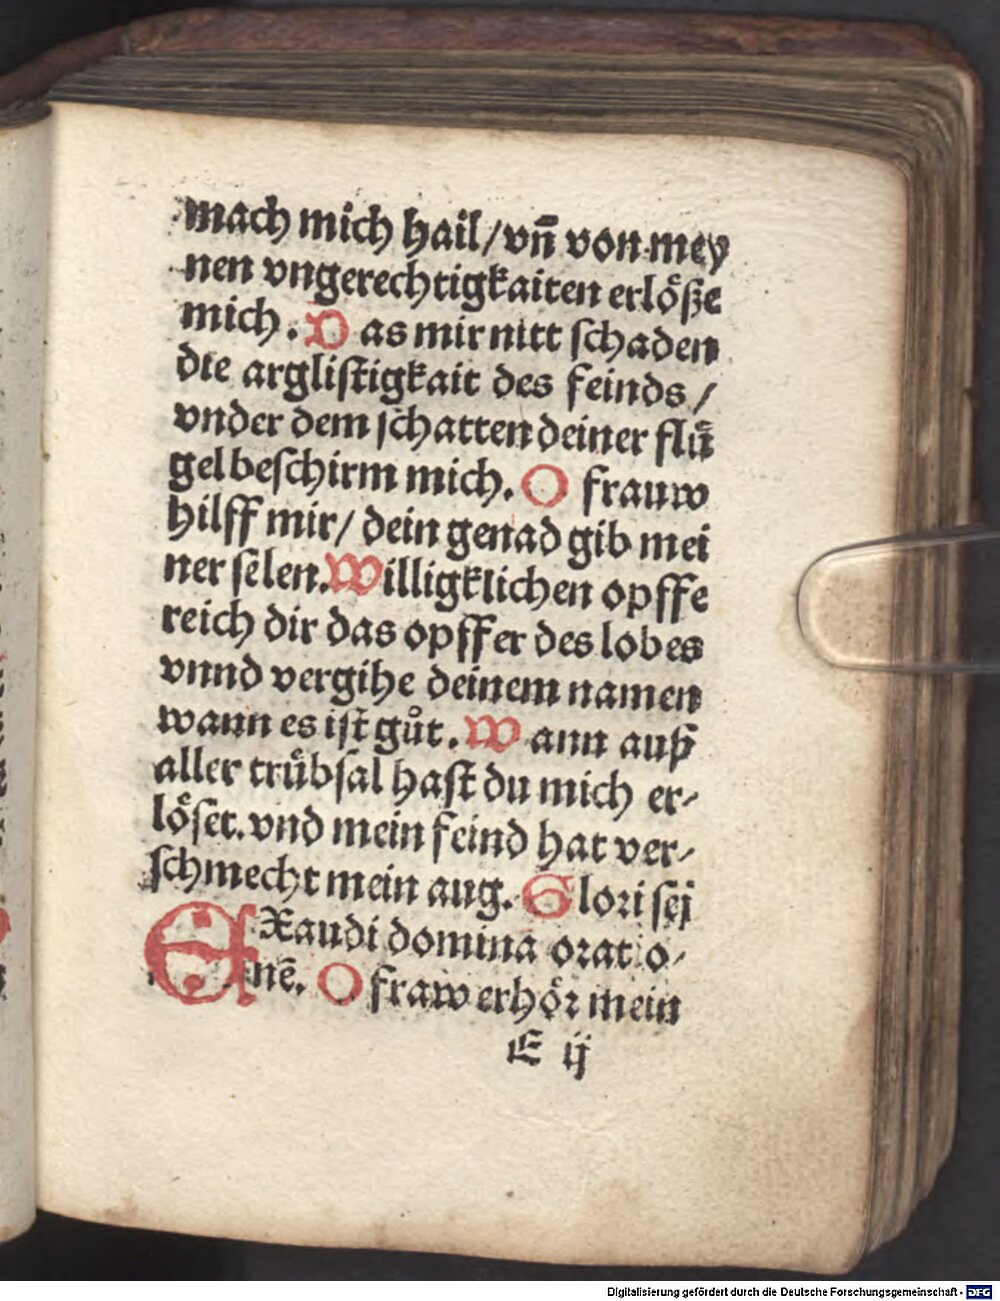 mach mich hail/vn̄ von mey
nen vngerechtigkaiten erlöſze
mich. D as mir nitt ſchaden
die argliſtigkait des feinds /
vnder dem ſchatten deiner fluͤ
gel beſchirm mich. O frauw
hilff mir/ dein genad gib mei
ner ſelen. Willigklichen opffe
reich dir das opffer des lobes
vnnd vergihe deinem namen
wann es iſt guͦt. W ann auſz
aller truͤbſal haſt du mich er⸗
loͤſet. vnd mein feind hat ver⸗
ſchmecht mein aug. Gloꝛi ſeij
EXaudi domina oꝛatio⸗
nē. O fraw erhoͤꝛ mein
E ij
Digitalisierung gefördert durch die Deutsche Forschungsgemeinschaft - DFG